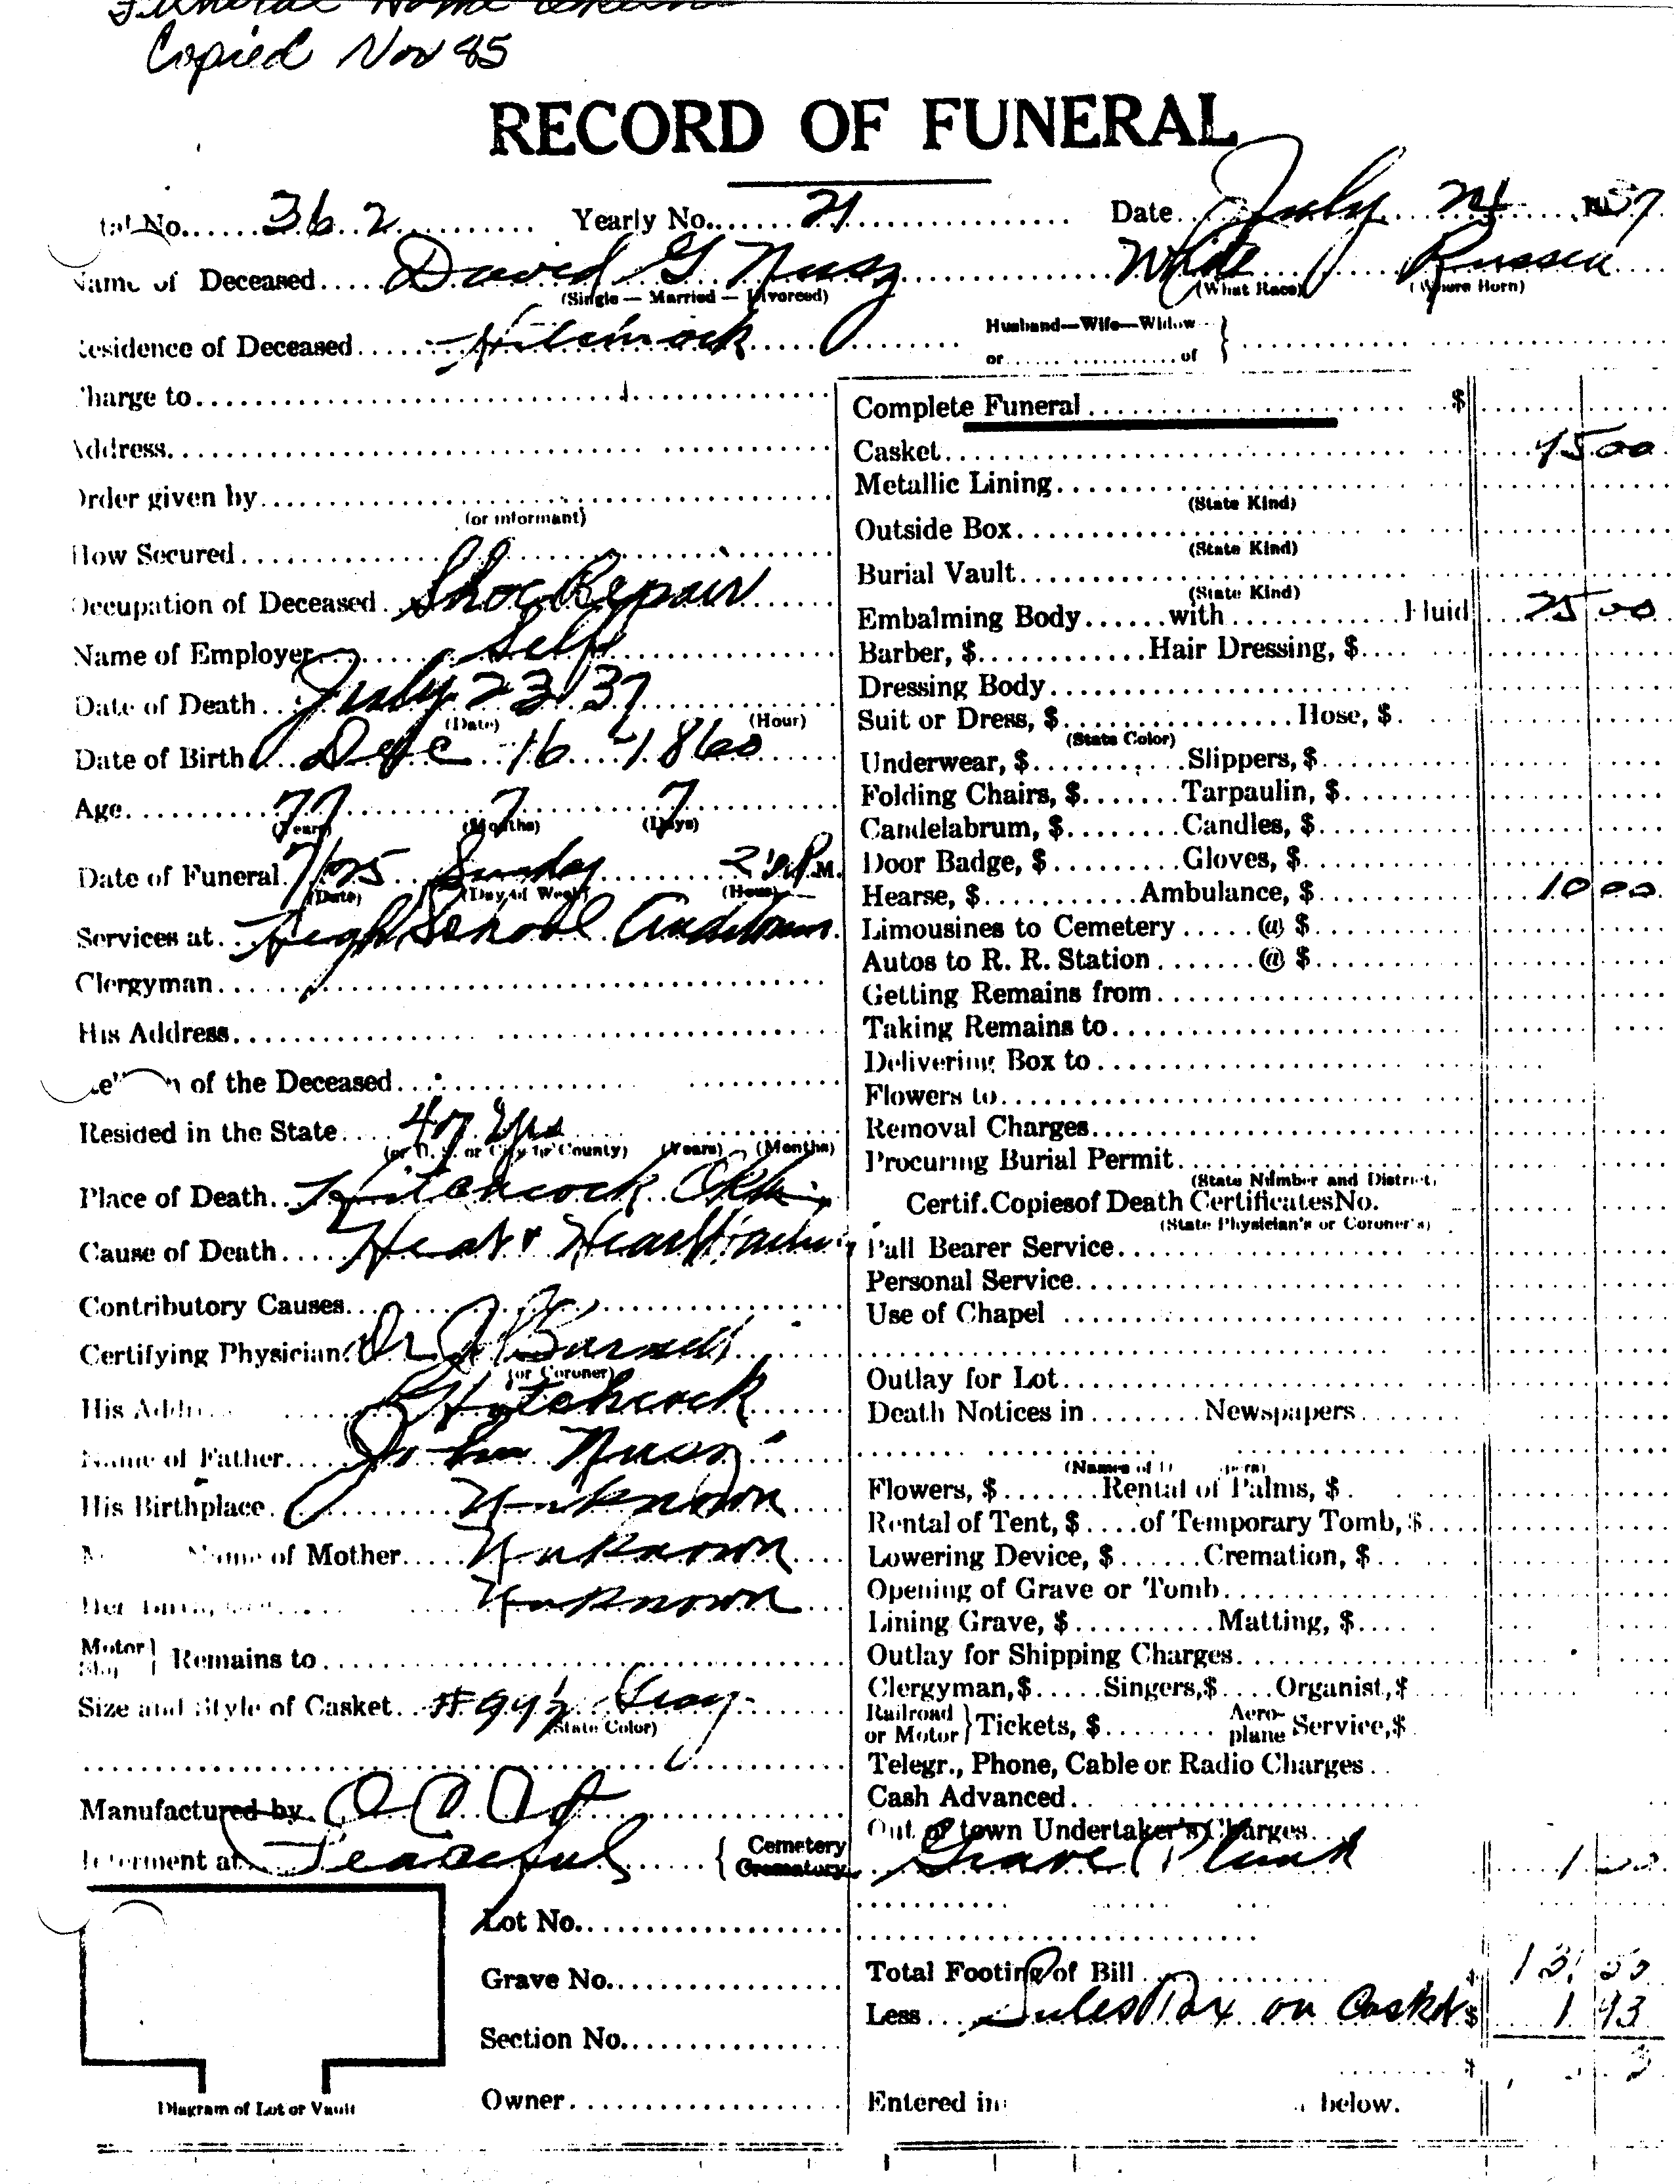 Funeral Home
Copied Nov 85
RECORD OF FUNERAL
No. 362 Yearly No. 21 Date July 24 1937
Name of Deceased David G Nusz White Russia
(Single — Married — Divorced) (What Race) (Where Born)
Residence of Deceased Husband—Wife—Widow
or of
Charge to
Address
Order given by
(or informant)
How Secured
Occupation of Deceased Shoe Repair
Name of Employer Self
Date of Death July 23 37
(Date) (Hour)
Date of Birth Dec 16 - 1860
Age 77 7 7
(Years) (Months) (Days)
Date of Funeral 7/25 Sunday 2 P.M.
(Date) (Day of Week) (Hour)
Services at High School Auditorium
Clergyman
His Address
of the Deceased
Resided in the State 47 Yrs
(or U. S. or City or County) (Years) (Months)
Place of Death Hitchcock Okla
Cause of Death Heat & Heart Failure
Contributory Causes
Certifying Physician Dr
(or Coroner)
His Addr Hitchcock
Name of Father John Nusz
His Birthplace Unknown
Name of Mother Unknown
Her Unknown
Motor
Ship } Remains to
Size and Style of Casket #94½ Gray
(State Color)
Manufactured by O C Co
Interment at Peaceful { Cemetery
Crematory
Lot No.
Grave No.
Section No.
Owner
Diagram of Lot or Vault
Complete Funeral $
Casket 95.00
Metallic Lining
(State Kind)
Outside Box
(State Kind)
Burial Vault
(State Kind)
Embalming Body with Fluid 25 00
Barber, $ Hair Dressing, $
Dressing Body
Suit or Dress, $ Hose, $
(State Color)
Underwear, $ Slippers, $
Folding Chairs, $ Tarpaulin, $
Candelabrum, $ Candles, $
Door Badge, $ Gloves, $
Hearse, $ Ambulance, $ 10 00
Limousines to Cemetery @ $
Autos to R. R. Station @ $
Getting Remains from
Taking Remains to
Delivering Box to
Flowers to
Removal Charges
Procuring Burial Permit
(State Number and District)
Certif. Copies of Death Certificates No.
(State Physician's or Coroner's)
Pall Bearer Service
Personal Service
Use of Chapel
Outlay for Lot
Death Notices in Newspapers
(Names of
Flowers, $ Rental of Palms, $
Rental of Tent, $ of Temporary Tomb, $
Lowering Device, $ Cremation, $
Opening of Grave or Tomb
Lining Grave, $ Matting, $
Outlay for Shipping Charges
Clergyman, $ Singers, $ Organist, $
Railroad
or Motor } Tickets, $ Aero-
plane Service, $
Telegr., Phone, Cable or Radio Charges
Cash Advanced
Out of town Undertaker's Charges
Grave 1 00
Total Footing of Bill $ 131 00
Less Sales Tax on Casket $ 1 93
$
Entered in below.